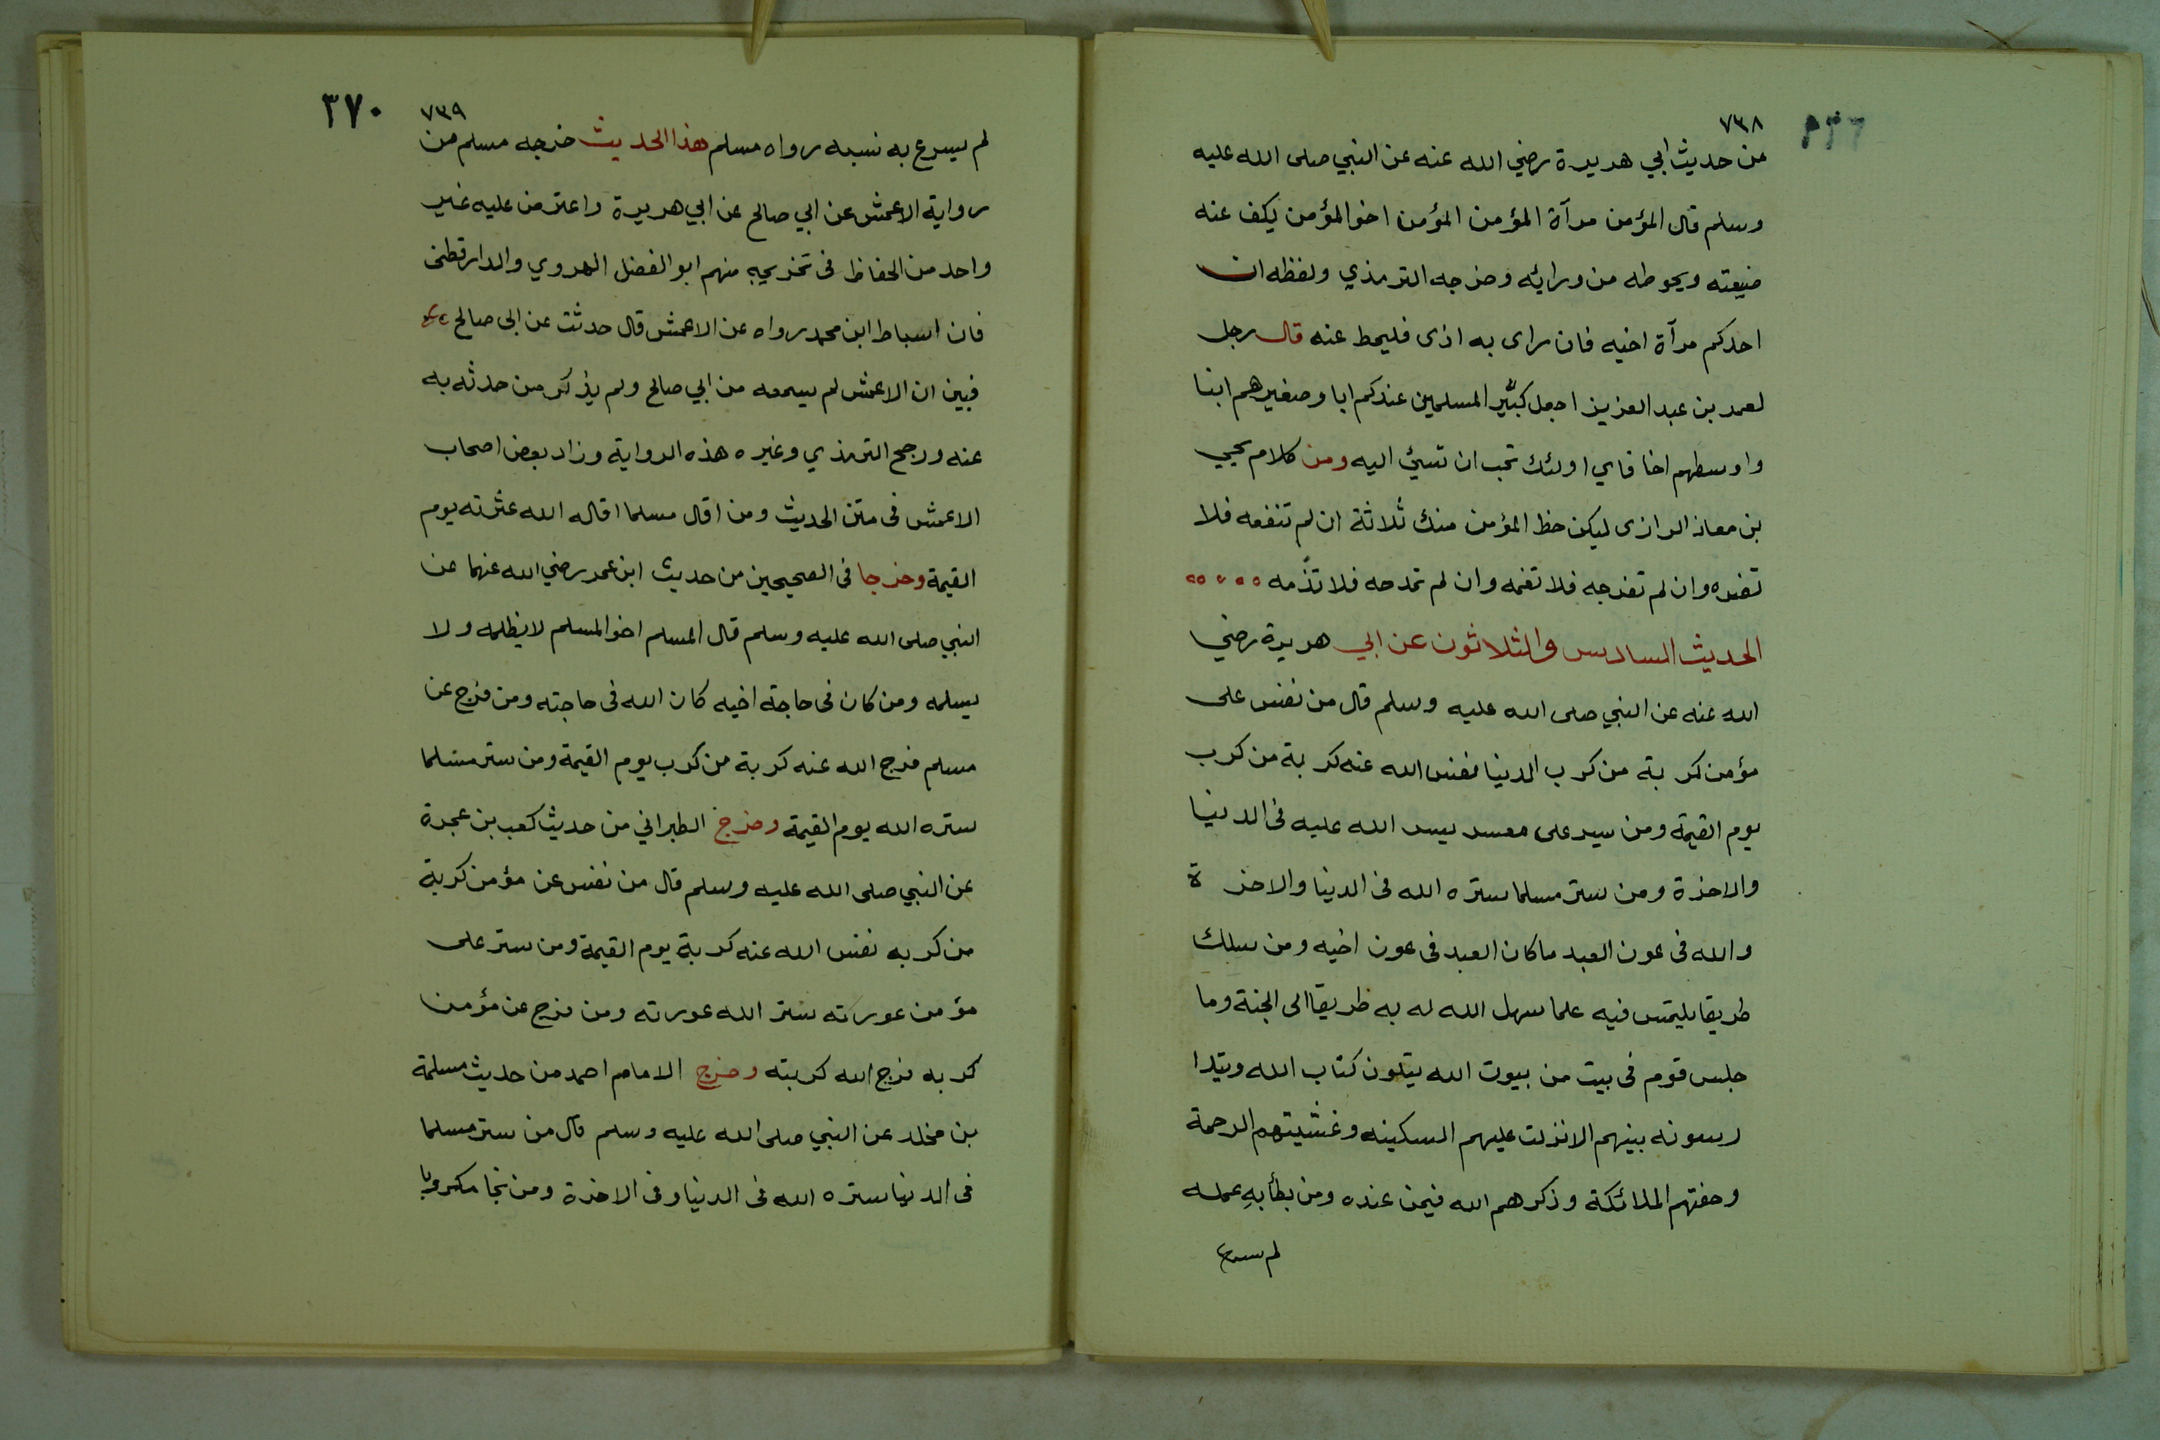 ٧٣٨
من حديث ابي هريرة رضي الله عنه عن النبي صلى الله عليه
وسلم قال المؤمن مرآة المؤمن المؤمن اخو المؤمن يكف عنه
ضيعته ويحوطه من ورائه وخرجه الترمذي ولفظه ان
احدكم مرآة اخيه فان راى به اذى فليمط عنه قال رجل
لعمر بن عبد العزيز اجعل كبير المسلمين عندكم ابا وصغيرهم ابنا
واوسطهم اخا فاي اولئك تحب ان تسئ اليه ومن كلام يحيي
بن معاذ الرازى ليكن حظ المؤمن منك ثلاثة ان لم تنفعه فلا
تضره وان لم تفرجه فلا تغمه وان لم تمدحه فلا تذمه
الحديث السادس والثلاثون عن ابي هريرة رضي
الله عنه عن النبي صلى الله عليه وسلم قال من نفس على
مؤمن كربة من كرب الدنيا نفس الله عنه كربة من كرب
يوم القيمة ومن يسر على معسر يسر الله عليه فى الدنيا
والاخرة ومن ستر مسلما ستره الله فى الدنيا والاخرة
والله فى عون العبد ما كان العبد فى عون اخيه ومن سلك
طريقا يلتمس فيه علما سهل الله له به طريقا الى الجنة وما
جلس قوم فى بيت من بيوت الله يتلون كتاب الله ويتدا
رسونه بينهم الا نزلت عليهم السكينه وغشيتهم الرحمة
وحفتهم الملائكة وذكرهم الله فيمن عنده ومن بطأ به عمله
لم يسرع
٧٣٩
٣٧٠
لم يسرع به نسبه رواه مسلم هذا الحديث خرجه مسلم من
رواية الاعمش عن ابي صالح عن ابي هريرة واعترض عليه غير
واحد من الحفاظ فى تخريجه منهم ابو الفضل الهروي والدارقطنى
فان اسباط ابن محمد رواه عن الاعمش قال حدثت عن ابى صالح
فبين ان الاعمش لم يسمعه من ابي صالح ولم يذكر من حدثه به
عنه ورجح الترمذي وغيره هذه الرواية وزاد بعض اصحاب
الاعمش فى متن الحديث ومن اقال مسلما اقاله الله عثرته يوم
القيمة وخرجا فى الصحيحين من حديث ابن عمر رضي الله عنهما عن
النبي صلى الله عليه وسلم قال المسلم اخو المسلم لا يظلمه ولا
يسلمه ومن كان فى حاجة اخيه كان الله فى حاجته ومن فرج عن
مسلم فرج الله عنه كربة من كرب يوم القيمة ومن ستر مسلما
ستره الله يوم القيمة وخرج الطبراني من حديث كعب بن عجرة
عن النبي صلى الله عليه وسلم قال من نفس عن مؤمن كربة
من كربه نفس الله عنه كربة يوم القيمة ومن ستر على
مؤمن عورته ستر الله عورته ومن فرج عن مؤمن
كربه فرج الله كربته وخرج الامام احمد من حديث مسلمة
بن مخلد عن النبي صلى الله عليه وسلم قال من ستر مسلما
فى الدنيا ستره الله فى الدنيا وفى الاخرة ومن نجا مكروبا